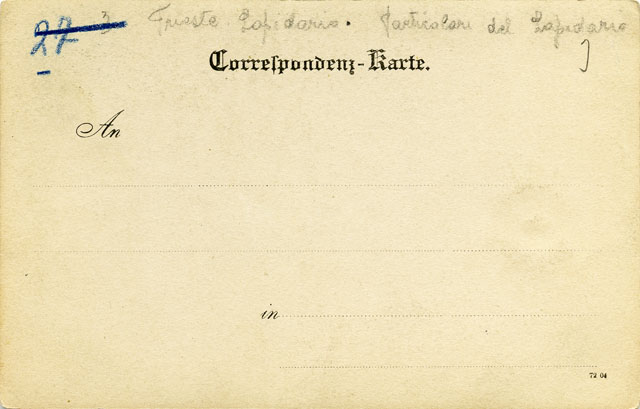 27 3 Trieste. Lapidario. Particolari del Lapidario
Correſpondenz-Karte.
An
in
72 04